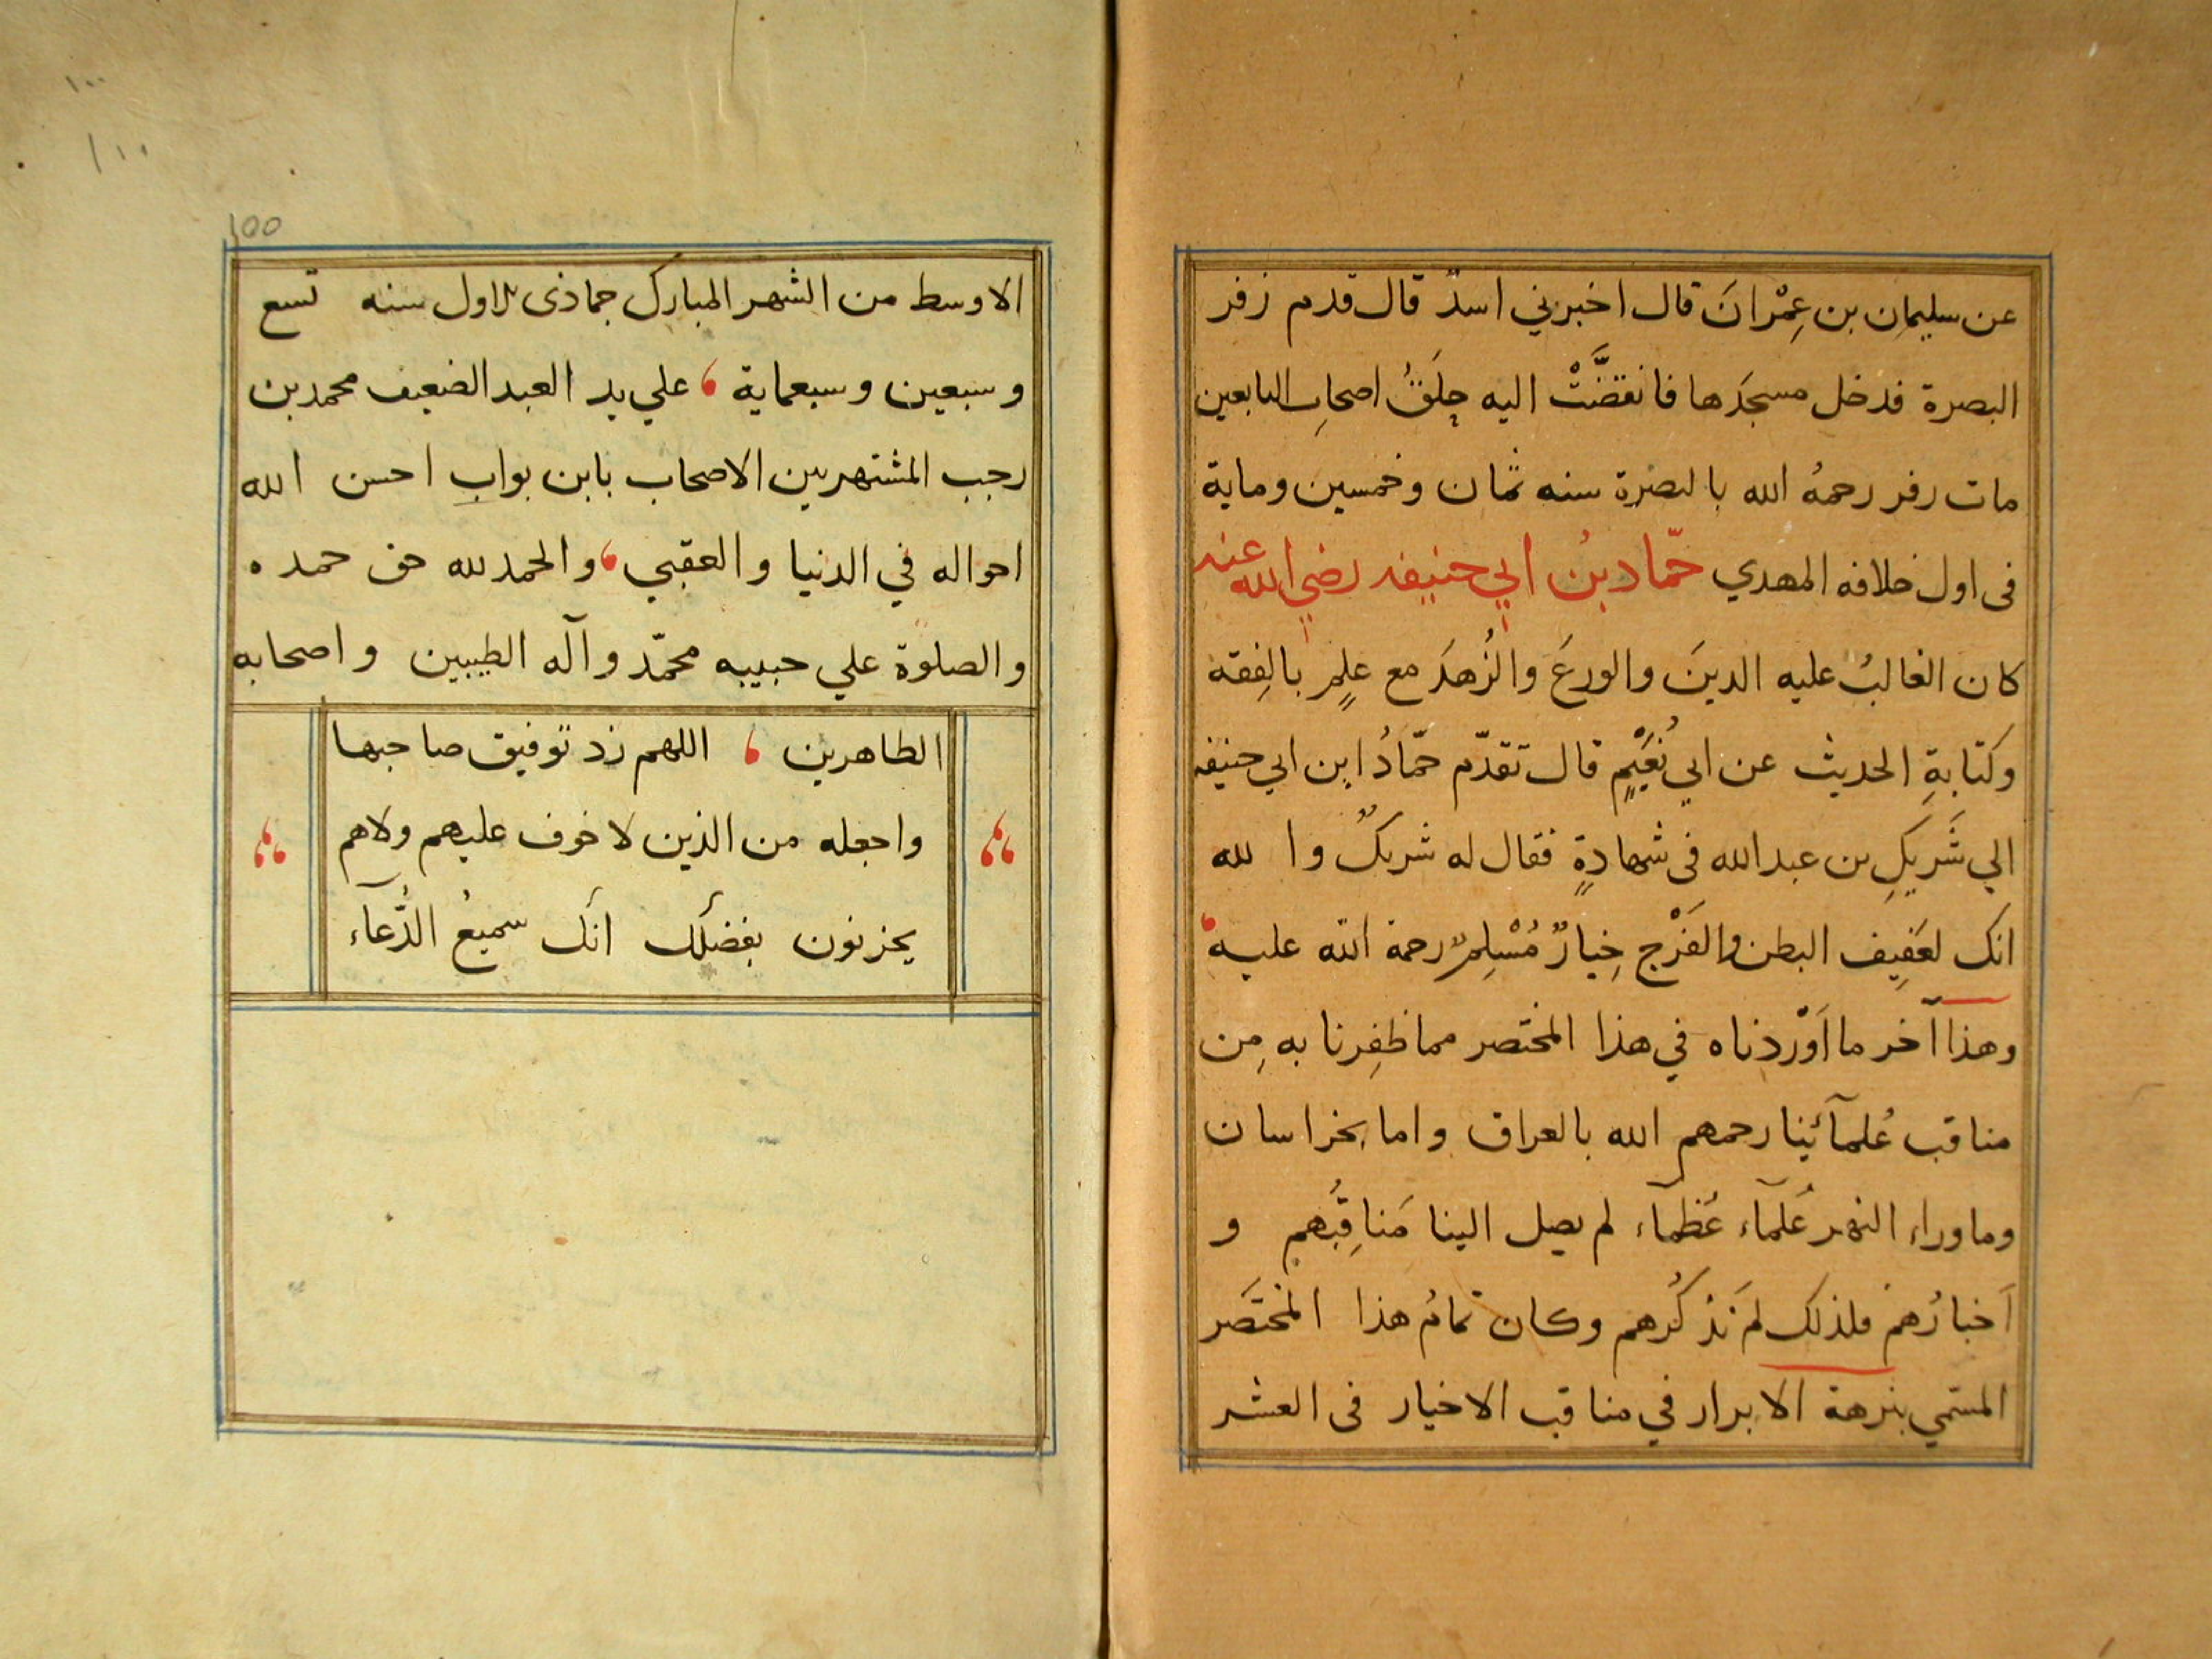 عن سليمان بن عِمْرانَ قال اخبرني اسدٌ قال قدم زفر
البصرة فدخل مسجدَها فانقضَّتْ اليه حِلَقُ اصحابِ التابعين
مات زفر رحمهُ الله بالبصرة سنه ثمان وخمسين وماية
فى اول خلافه المهدي حمّاد بنُ ابي حنيفه رضي الله عنه
كان الغالبُ عليه الدينَ والورعَ والزُهدَ مع علمٍ بالفِقه
وكتابةِ الحديث عن ابي نُعَيْمٍ قال تقدّم حمّادُ ابن ابي حنيفه
الي شَرِيكِ بن عبد الله فى شهادةٍ فقال له شريكٌ والله
انك لعَفِيف البطن والفَرْج خِيارٌ مُسْلِمٌ رحمة الله عليه
وهذا آخر ما اَوْرَدناه في هذا المختصر مما ظفِرنا به مِن
مناقب عُلمآئِنا رحمهم الله بالعراق واما بخراسان
وماوراء النهر عُلمآء عُظمآء لم يصل الينا مَناقِبُهم و
اَخبارُهم فلذلك لم نَذكُرهم وكان تمامُ هذا المختصَر
المسمّي بنزهة الابرار في مناقب الاخيار فى العشر
100
الاوسط من الشهر المبارك جمادى الاول سنه تسع
وسبعين وسبعماية علي يد العبد الضعيف محمد بن
رجب المشتهر بين الاصحاب بابن بواب احسن الله
احواله في الدنيا والعقبي والحمد لله حق حمده
والصلوة علي حبيبه محمّد وآله الطيبين واصحابه
الطاهرين اللهم زد توفيق صاحبها
واجعله من الذين لا خوف عليهم ولاهم
يحزنون بفضلك انك سميعُ الدُّعآء